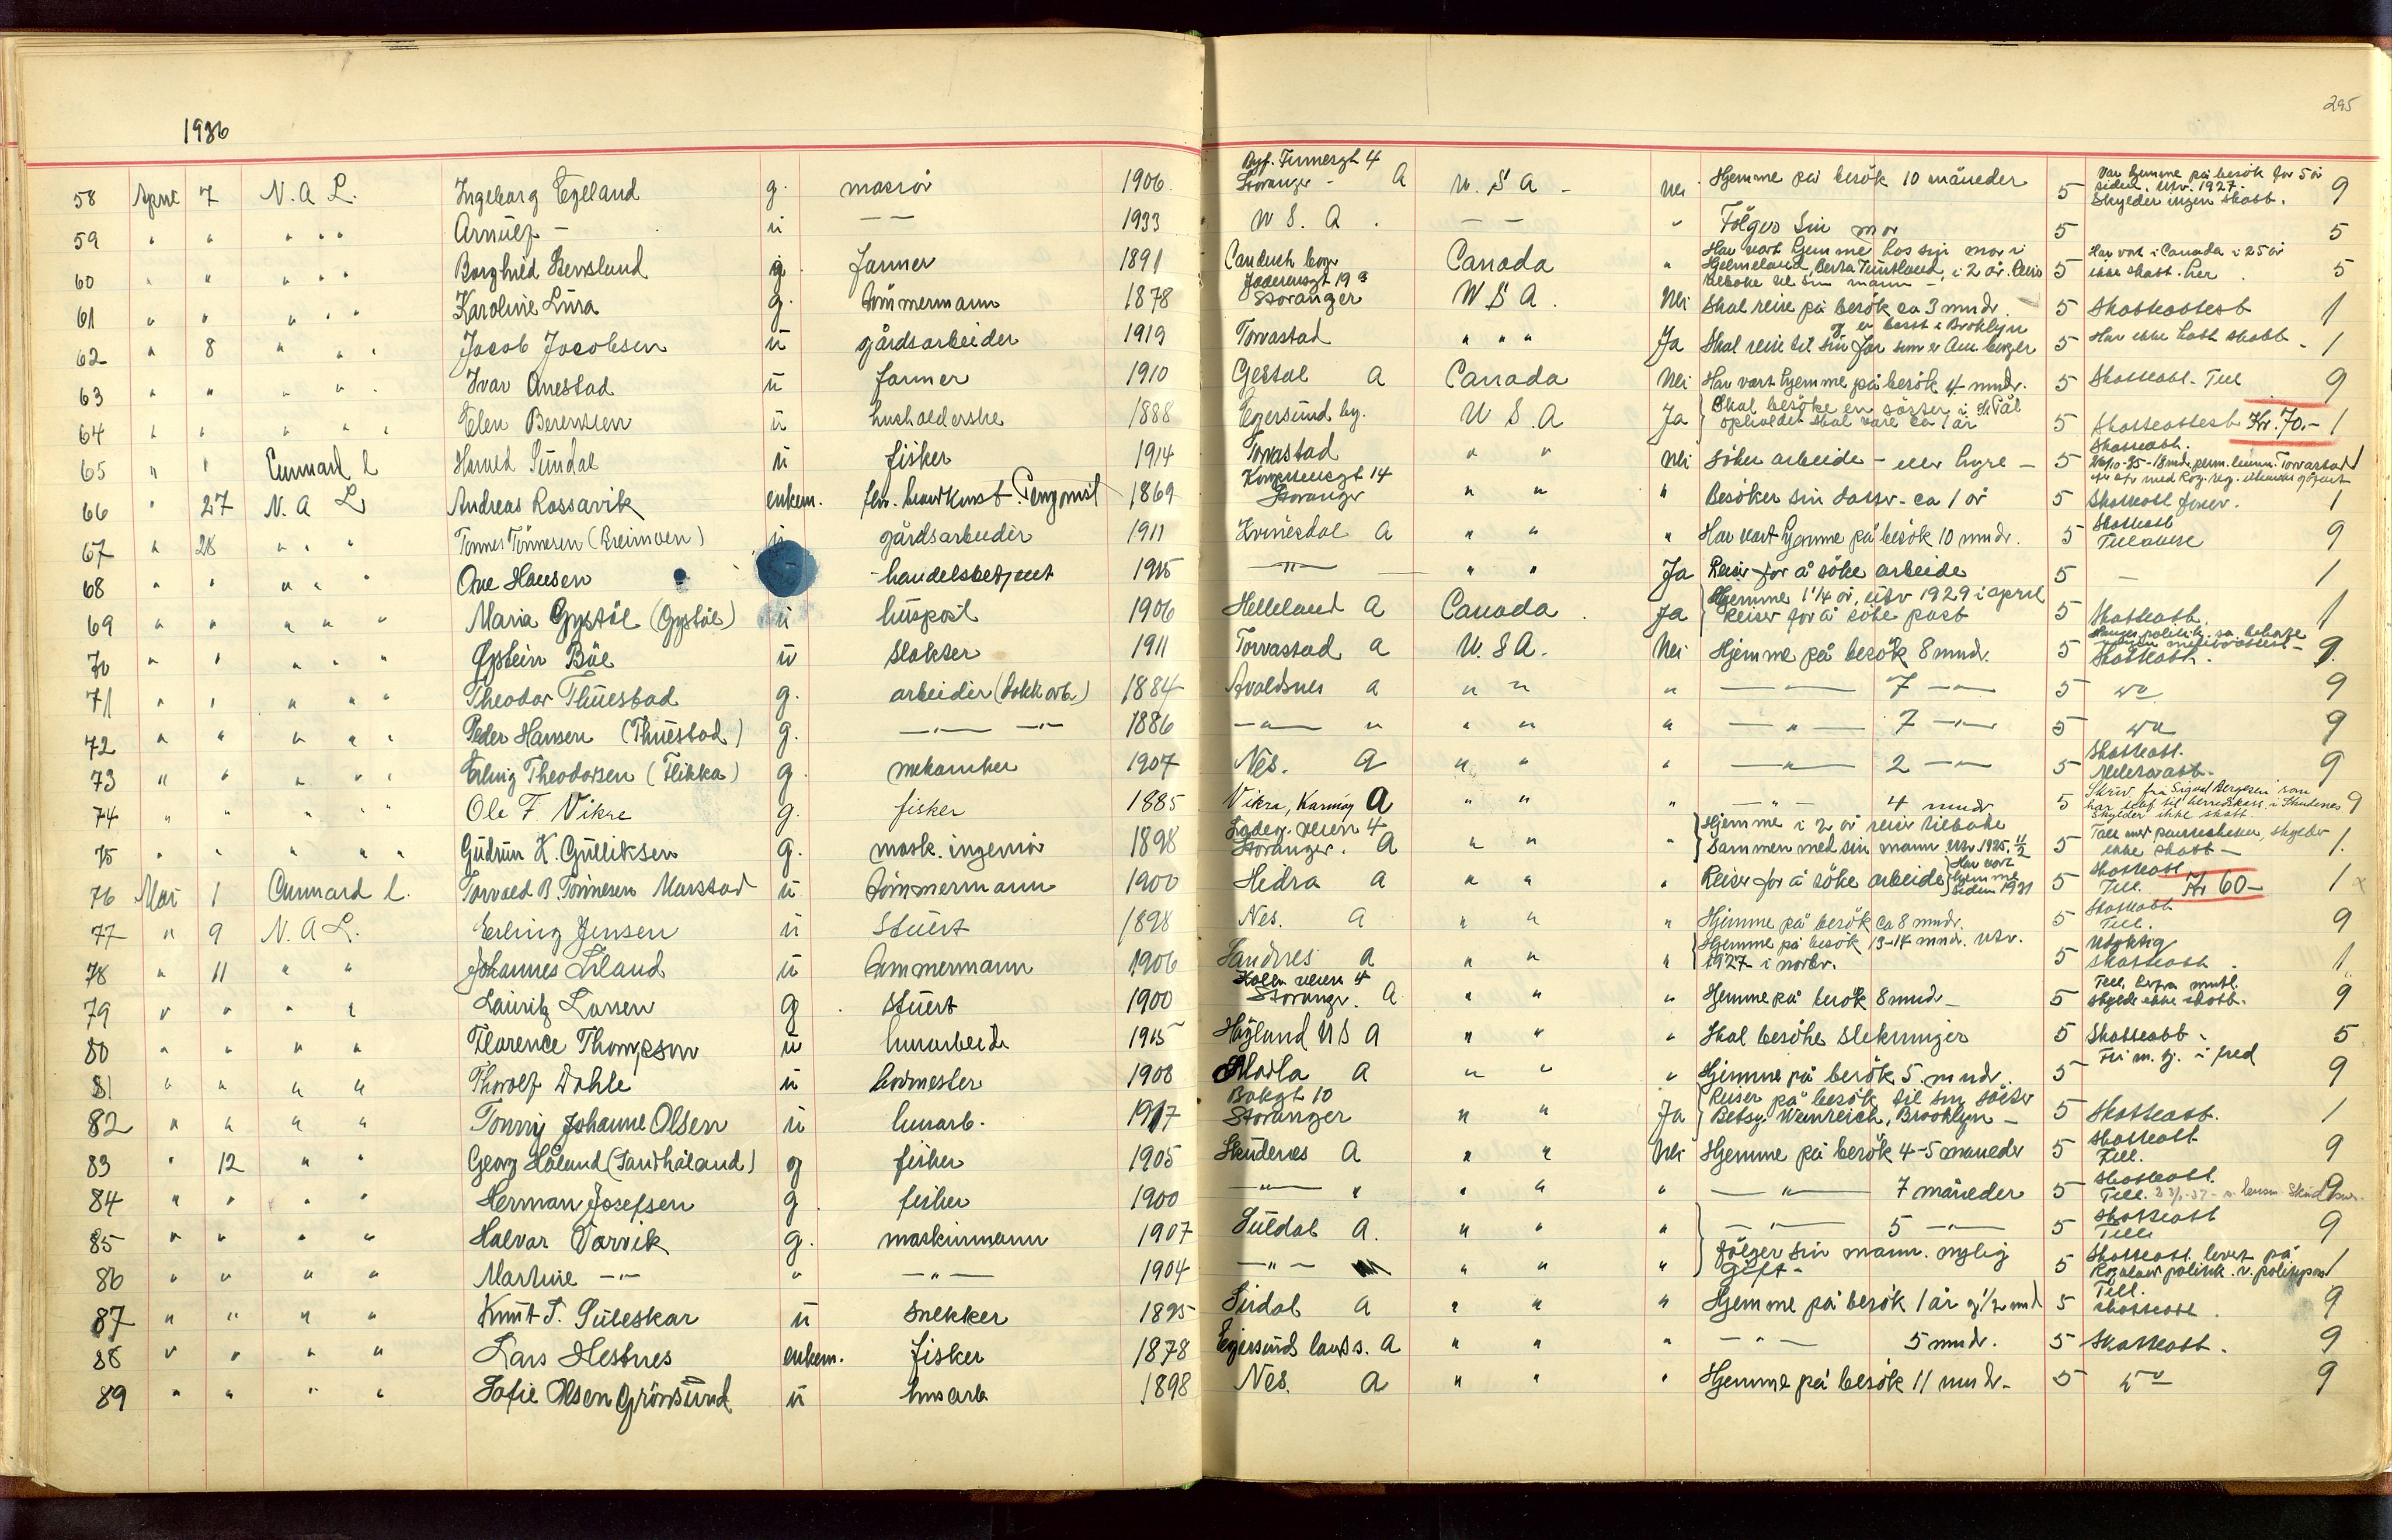 295
1936
58 April 7 N. A. L. Ingeborg Egelland g. massør 1906 Stavanger - A U. S. A - Nei Hjemme på besök 10 måneder 5 Var hjemme på besök for 5 år siden. Utv. 1927. Skylder ingen skatt. 9
59 " " " " " Arnulf - u — — 1933 U. S. A. — — " Fölger sin mor 5 5
60 " " " " " Borghild g farmer 1891 Canada " Har vært hjemme hos sin mor i Hjelmeland, i 2 år. Reis tilbake til sin mann - 5 Har vært i Canada i 25 år ikke skatt her. 5
61 " " " " " Karoline Lura g. tömmermann 1878 Stavanger U S A. Nei Skal reise på besök ca 3 mndr. 5 Skatteattest 1
62 " 8 " " " Jacob Jacobsen u gårdsarbeider 1919 Torvastad " " " Ja Skal reise til sin far som er Am borger og er bosatt i Brooklyn 5 Har ikke hatt skatt - 1
63 " " " " " Ivar Anestad u farmer 1910 Gjestal A Canada Nei Har vært hjemme på besök 4 mndr. 5 Skatteatt. Till 9
64 " " " " " Elen Berentsen u husholderske 1888 Egersund by. U S. A Ja Skal besöke en söster i opholdet skal vare ca 1 år 5 Skatteattest Kr. 70.- 1
65 " " Cunnard L Harald Sundal u fisker 1914 Torvastad " " Nei Söker arbeide - eller hyre - 5 Skatteatt. 1
66 " 27 N. A L Andreas Rossavik enkem. 1869 Kongsteinsgt 14 Stavanger " " " Besöker sin datter - ca 1 år 5 Skatteatt 1
67 " 28 " " " Tönnes Tönnesen (Kreimoen) u gårdsarbeider 1911 Kvinesdal A " " " Har vært hjemme på besök 10 mndr. 5 Skatteatt Tillatelse 9
68 " " " " " Ove Hansen handelsbetjent 1915 — " — " " Ja Reiser for å söke arbeide 5 — 1
69 " " " " " Maria Gystöl (Gystöl) u huspost 1906 Helleland A Canada. Ja Hjemme 1 1/4 år, utv 1929 i april Reiser for å söke post 5 Skatteatt. 1
70 " " " " " Øystein Böe u slakter 1911 Torvastad a U. S A. Nei Hjemme på besök 8 mndr. 5 Skatteatt. 9.
71 " " " " " Theodor Thuestad g. arbeider (dokkarb.) 1884 Avaldsnes a " " " — — 7 — 5 do 9
72 " " " " " Peder Hansen (Thuestad) g. — " — 1886 — " — " " " " — " — 7 — " — 5 do 9
73 " " " " " Erling Theodorsen (Flikka) g. mekaniker 1907 Nes. A " " " — " — 2 — " — 5 Skatteatt. 9
74 " " " " " Ole F. Vikre g. fisker 1885 Vikra, Karmöy A " " " — " — 4 mndr 5 Skriv. fra Sigvald Bergesen som har tlf til herredskass. i Skudenes Skylder ikke skatt. 9
75 " " " " " Gudrun K. Gulliksen g. mask. ingeniör 1898 Stavanger. A " " " Hjemme i 2 år reiser tilbake sammen med sin mann Utv 1925. 5 skylder ikke skatt — 1.
76 Mai 1 Cunnard L. Torvald B. Tönnesen Marstad u tömmermann 1900 Hidra A " " " Reiser for å söke arbeide Har vært hjemme siden 1931 5 Skatteatt Till. Kr 60- 1 x
77 " 9 N. A L. Erling Jensen u Stuert 1898 Nes. A " " " Hjemme på besök ca 8 mndr. 5 Skatteatt Till. 9
78 " 11 " " Johannes u tömmermann 1906 Sandnes a " " " Hjemme på besök 13-14 mndr. Utv. 1927 i novbr. 5 Utyktig Skatteatt. 1
79 " " " " Lauritz Larsen g. Stuert 1900 Stavanger. A " " " Hjemme på besök 8 mndr — 5 skylder ikke skatt. 9
80 " " " " Florence Thompson u husarbeide 1915 Högland U S A " " " Skal besöke slektninger 5 Skatteatt - 5
81 " " " " Thorolf Dahle u 1908 Madla A " " " Hjemme på besök 5 mndr. 5 9
82 " " " " Tonny Johanne Olsen u husarb. 1917 Bakgt 10 Stavanger " " Ja Reiser på besök til sin söster Betsy Weinreich, Brooklyn — 5 Skatteatt. 1
83 " 12 " " Georg Håland (Sandhåland) g fisker 1905 Skudenes A " " Nei Hjemme på besök 4-5 måneder 5 Skatteatt Till. 9
84 " " " " Herman Josefsen g. fisker 1900 — " — " " " " — " — 7 måneder 5 Skatteatt. Till. 9
85 " " " " Halvar Tarvik g. maskinmann 1907 Suldal A. " " " — " — 5 — " — 5 Skatteatt Till. 9
86 " " " " Martine — " — " — " — 1904 — " — " " " Fölger sin mann. nylig gift - 5 Skatteatt. levert på Rogaland politik. 1
87 " " " " Knut T. Suleskar u Snekker 1895 Sirdal A " " " Hjemme på besök 1 år og 1/2 mnd 5 Till. skatteatt. 9
88 " " " " Lars Hestnes enkem. fisker 1878 Egersund lands. A " " " — " — 5 mndr. 5 Skatteatt. 9
89 " " " " Sofie Olsen Grönsund u husarb 1898 Nes. A " " " Hjemme på besök 11 mndr - 5 do 9